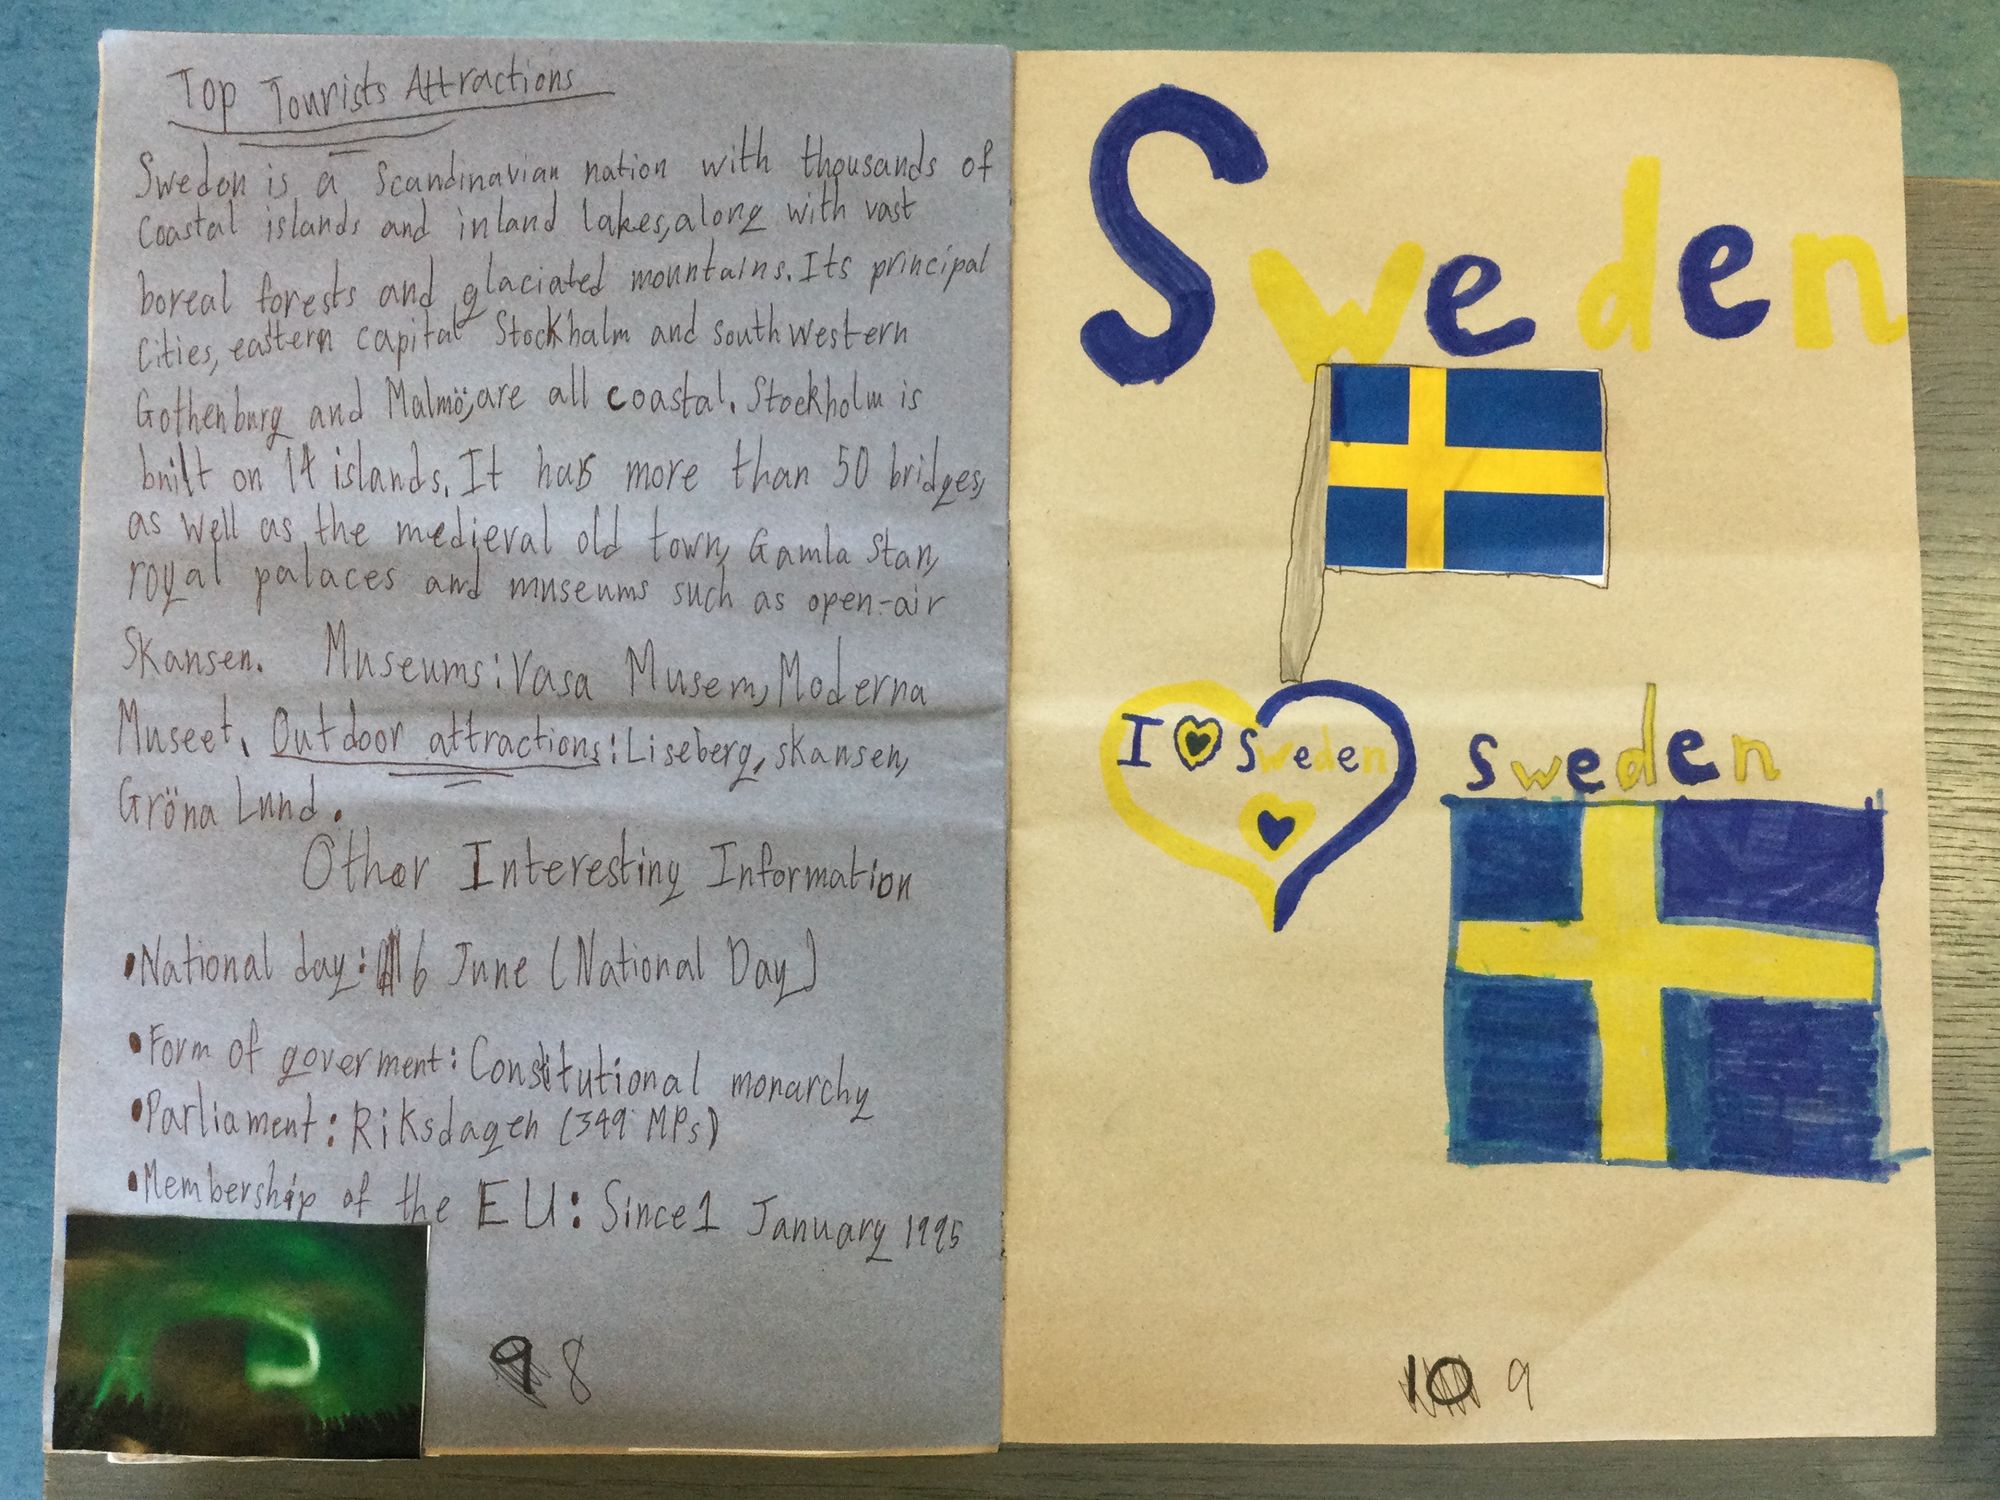 Top Tourists Attractions
Sweden is a Scandinavian nation with thousands of
coastal islands and inland lakes, along with vast
boreal forests and glaciated mountains. Its principal
cities, eastern capital Stockhalm and southwestern
Gothenburg and Malmö, are all coastal. Stockholm is
built on 14 islands. It has more than 50 bridges,
as well as the medieval old town, Gamla Stan,
royal palaces and museums such as open-air
Skansen. Museums: Vasa Musem, Moderna
Museet. Outdoor attractions: Liseberg, skansen,
Gröna Lund.
Other Interesting Information
• National day: 6 June (National Day)
• Form of goverment: Constitutional monarchy
• Parliament: Riksdagen (349 MPs)
• Membership of the EU: Since 1 January 1995
9 8
Sweden
I Sweden
Sweden
10 9